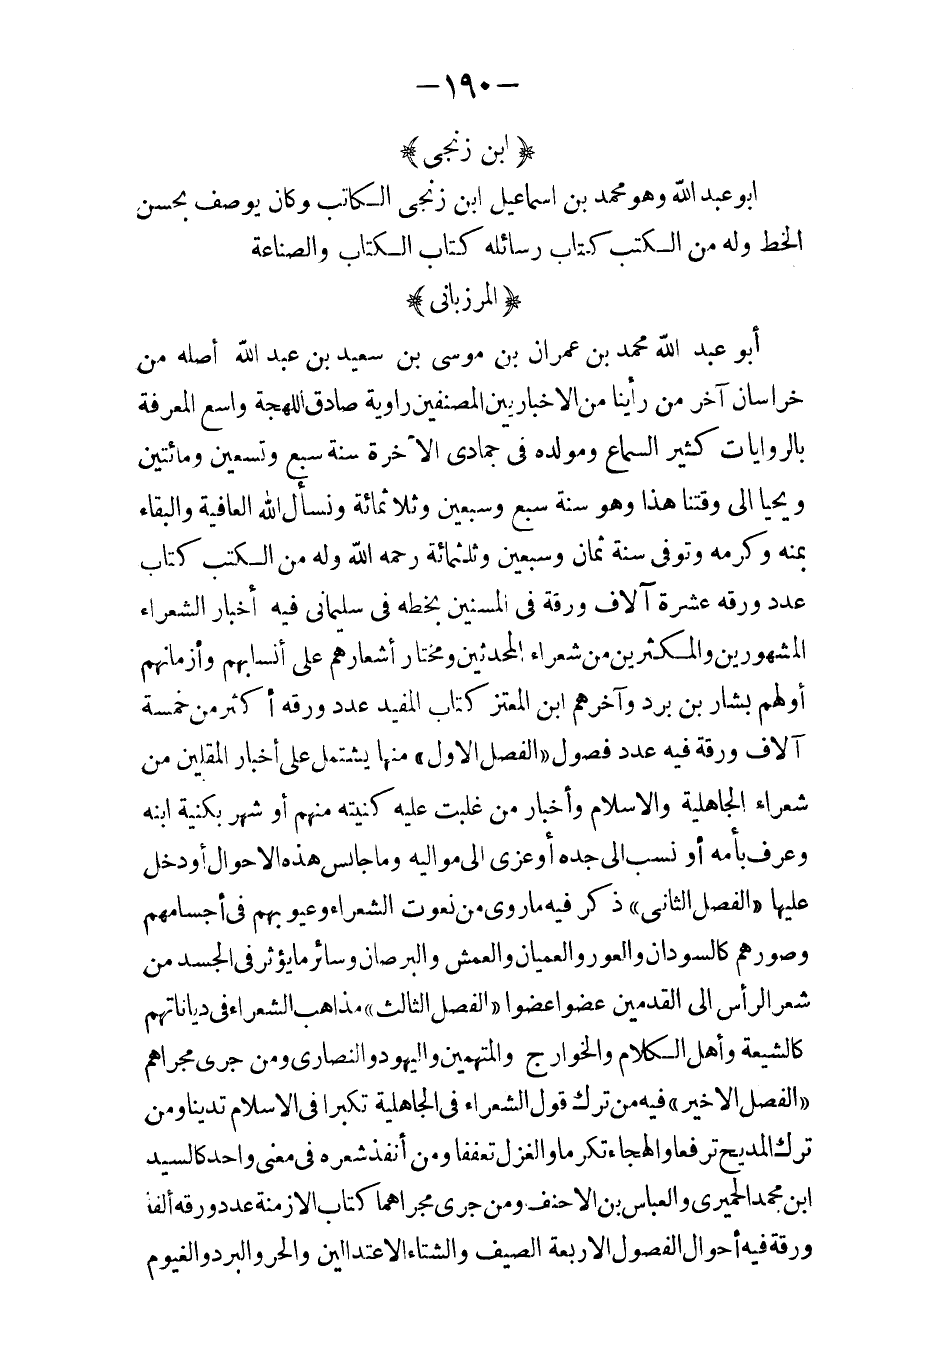 — ١٩٠ —
﴿ ابن زنجى ﴾
ابو عبد الله وهو محمد بن اسماعيل ابن زنجى الكاتب وكان يوصف بحسن
الخط وله من الكتب كتاب رسائله كتاب الكتاب والصناعة
﴿ المرزبانى ﴾
أبو عبد الله محمد بن عمران بن موسى بن سعيد بن عبد الله أصله من
خراسان آخر من رأينا من الاخباريين المصنفين راوية صادق اللهجة واسع المعرفة
بالروايات كثير السماع ومولده فى جمادى الآخرة سنة سبع وتسعين ومائتين
ويحيا الى وقتنا هذا وهو سنة سبع وسبعين وثلاثمائة ونسأل الله العافية والبقاء
بمنه وكرمه وتوفى سنة ثمان وسبعين وثلثمائة رحمه الله وله من الكتب كتاب
عدد ورقه عشرة آلاف ورقة فى المسنين بخطه فى سليمانى فيه أخبار الشعراء
المشهورين والمكثرين من شعراء المحدثين ومختار أشعارهم على أنسابهم وأزمانهم
أولهم بشار بن برد وآخرهم ابن المعتز كتاب المفيد عدد ورقه أكثر من خمسة
آلاف ورقة فيه عدد فصول «الفصل الاول» منها يشتمل على أخبار المقلين من
شعراء الجاهلية والاسلام وأخبار من غلبت عليه كنيته منهم أو شهر بكنية ابنه
وعرف بأمه أو نسب الى جده أو عزى الى مواليه وما جانس هذه الاحوال أو دخل
عليها «الفصل الثانى» ذكر فيه ما روى من نعوت الشعراء وعيوبهم فى أجسامهم
وصورهم كالسودان والعور والعميان والعمش والبرصان وسائر ما يؤثر فى الجسد من
شعر الرأس الى القدمين عضوا عضوا «الفصل الثالث» مذاهب الشعراء فى دياناتهم
كالشيعة وأهل الكلام والخوارج والمتهمين واليهود والنصارى ومن جرى مجراهم
«الفصل الاخير» فيه من ترك قول الشعراء فى الجاهلية تكبرا فى الاسلام تدينا ومن
ترك المديح ترفعا والهجاء تكرما والغزل تعففا ومن أنفذ شعره فى معنى واحد كالسيد
ابن محمد الحميرى والعباس بن الاحنف ومن جرى مجراهما كتاب الازمنة عدد ورقه ألفا
ورقة فيه أحوال الفصول الاربعة الصيف والشتاء الاعتدالين والحر والبرد والغيوم